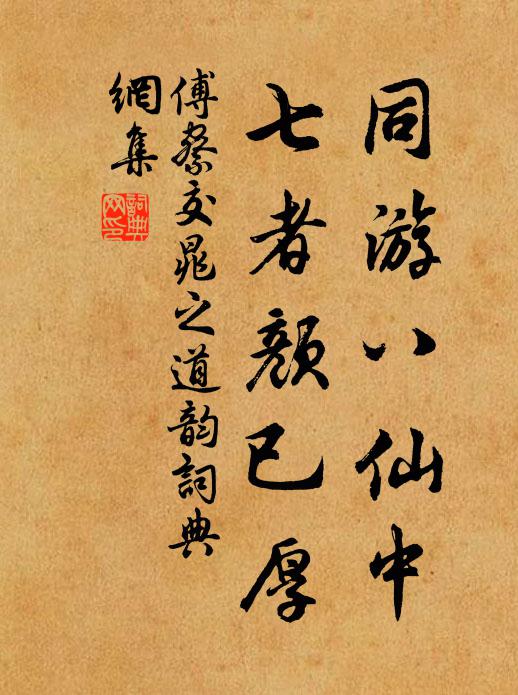 同游八仙中
七者颜已厚
傅察交晁之道韵詞典
網集
詞典网印